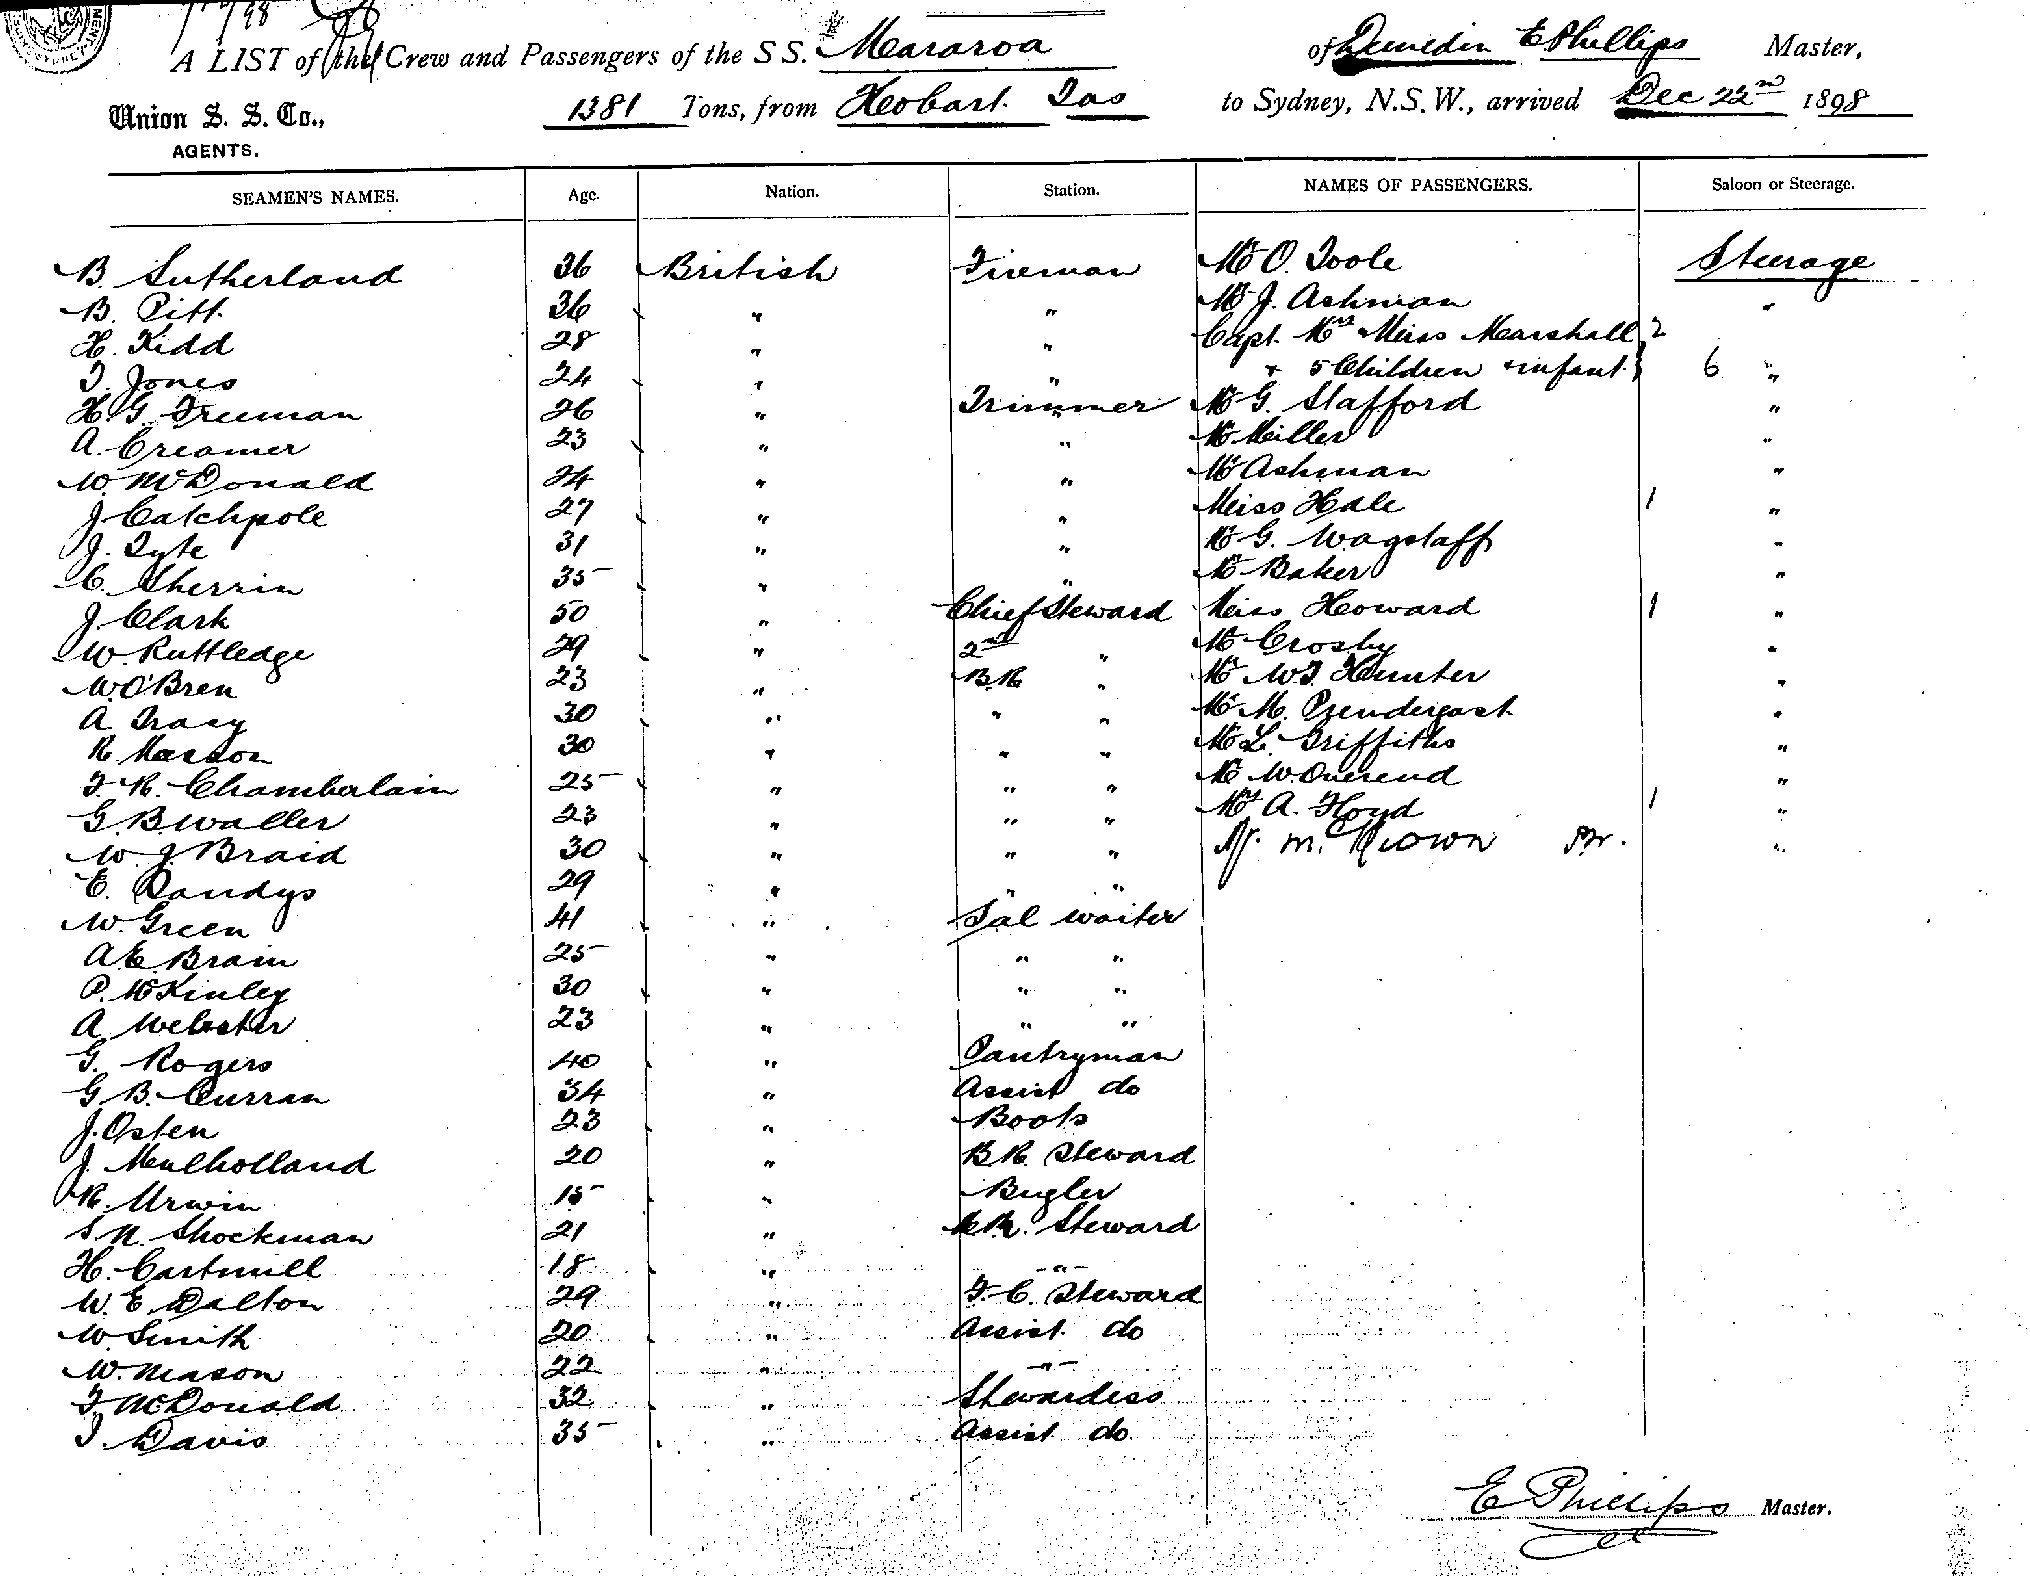 A LIST of the Crew and Passengers of the S S. Mararoa of Dunedin E Phillips Master,
Union S. S. Co., 1381 Tons, from Hobart. Tas to Sydney, N.S.W., arrived Dec 22nd 1898
AGENTS.
SEAMEN'S NAMES. Age. Nation. Station. NAMES OF PASSENGERS. Saloon or Steerage.
B. Sutherland 36 British Fireman Mr O. Toole Steerage
B. Pitt 36 " " Mr J. Ashman "
H. Kidd 28 " " Capt. Mrs Miss Marshall 2
T. Jones 24 " " + 5 Children + infant } 6 "
H. G. Freeman 26 " Trimmer Mr G. Stafford "
A. Creamer 23 " " Mr Miller "
W. McDonald 24 " " Mr Ashman "
J. Catchpole 27 " " Miss Hale 1 "
J. Tyte 31 " " Mr G. Wagstaff "
C. Sherrin 35 " " Mr Baker "
J. Clark 50 " Chief Steward Miss Howard 1 "
W. Ruttledge 29 " 2nd " Mr Crosby "
W. O'Bren 23 " B.R. " Mr W. T. Hunter "
A. Tracy 30 " " " Mr M. Prendergast "
R. Masson 30 " " " Mr L. Griffiths "
F. R. Chamberlain 25 " " " Mr W. Overend "
G. B. Waller 23 " " " Mrs A. Floyd 1 "
W. J. Braid 30 " " " "
E. Pandys 29 " " "
W. Green 41 " Sal waiter
A. E. Brain 25 " " "
P. McKinley 30 " " "
A Webster 23 " " "
G. Rogers 40 " Pantryman
G. B. Curran 34 " Assist do
J. Osten 23 " Boots
J. Mulholland 20 " B.R. Steward
R. Urwin 15 " Bugler
S. N. Shockman 21 " Steward
H. Cartmill 18 " "
W. E. Dalton 29 " F. C. Steward
W. Smith 20 " Assist. do
W. Mason 22 " "
F. McDonald 32 " Stewardess
T. Davis 35 " Assist do
E Phillips Master.